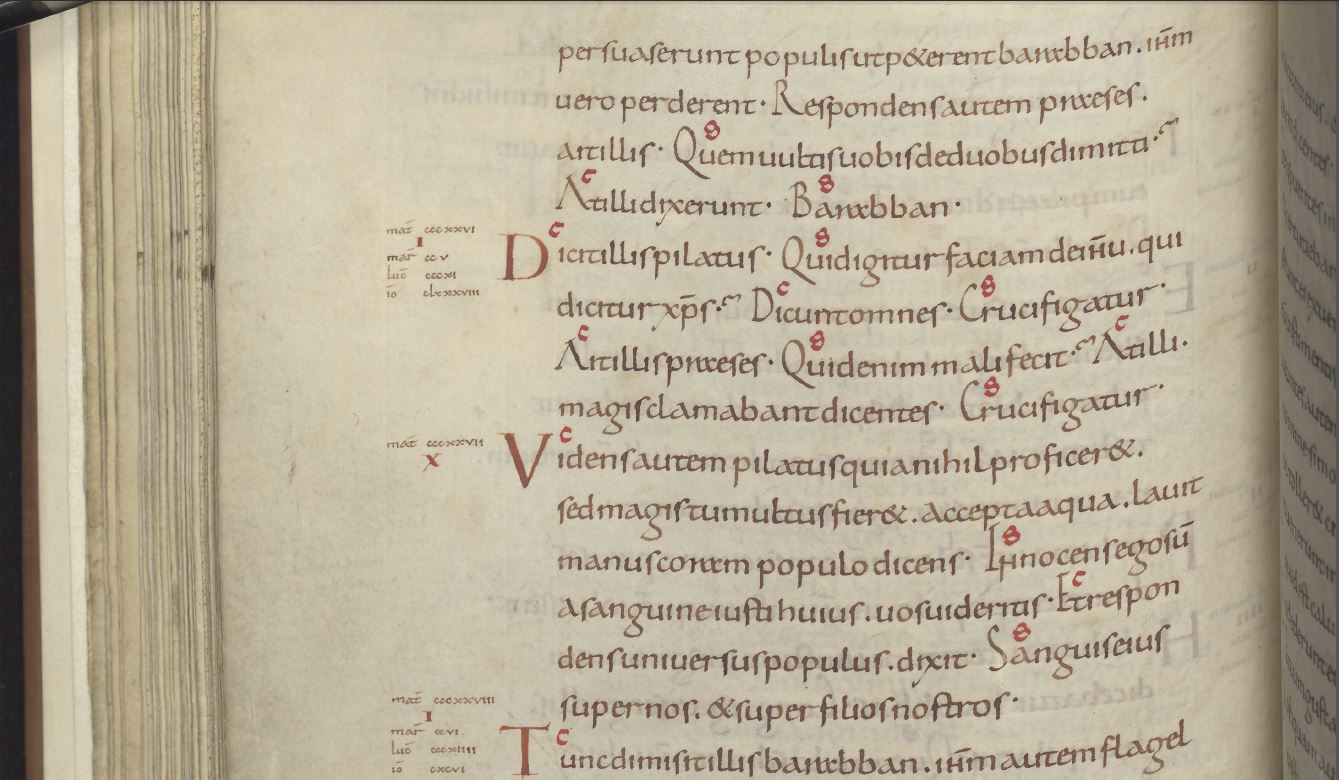 persuaserunt populis ut p&erent barabban. ih̄m
uero perderent· Respondens autem praeses.
ait illis· Quem uultis uobis de duobus dimitti·
At illi dixerunt· Barabban·
mat̄ cccxxvi
I
mar̄ ccv
luc̄ cccxi
iō clxxxviii
Dicit illis pilatus· Quid igitur faciam de ih̄u. qui
dicitur xp̄s· Dicunt omnes· Crucifigatur·
Ait illis praeses· Quid enim mali fecit· At illi·
magis clamabant dicentes· Crucifigatur·
mat̄ cccxxvii
X
Videns autem pilatus quia nihil proficer&.
sed magis tumultus fier&. accepta aqua. lauit
manus coram populo dicens· Innocens ego sū
a sanguine iusti huius. uos uideritis· Et respon
dens uniuersus populus. dixit· Sanguis eius
super nos. & super filios nostros·
mat̄ cccxxviii
I
mar̄ ccvi
luc̄ cccxiiii
iō cxcvi
Tunc dimisit illis barabban. ih̄m autem flagel